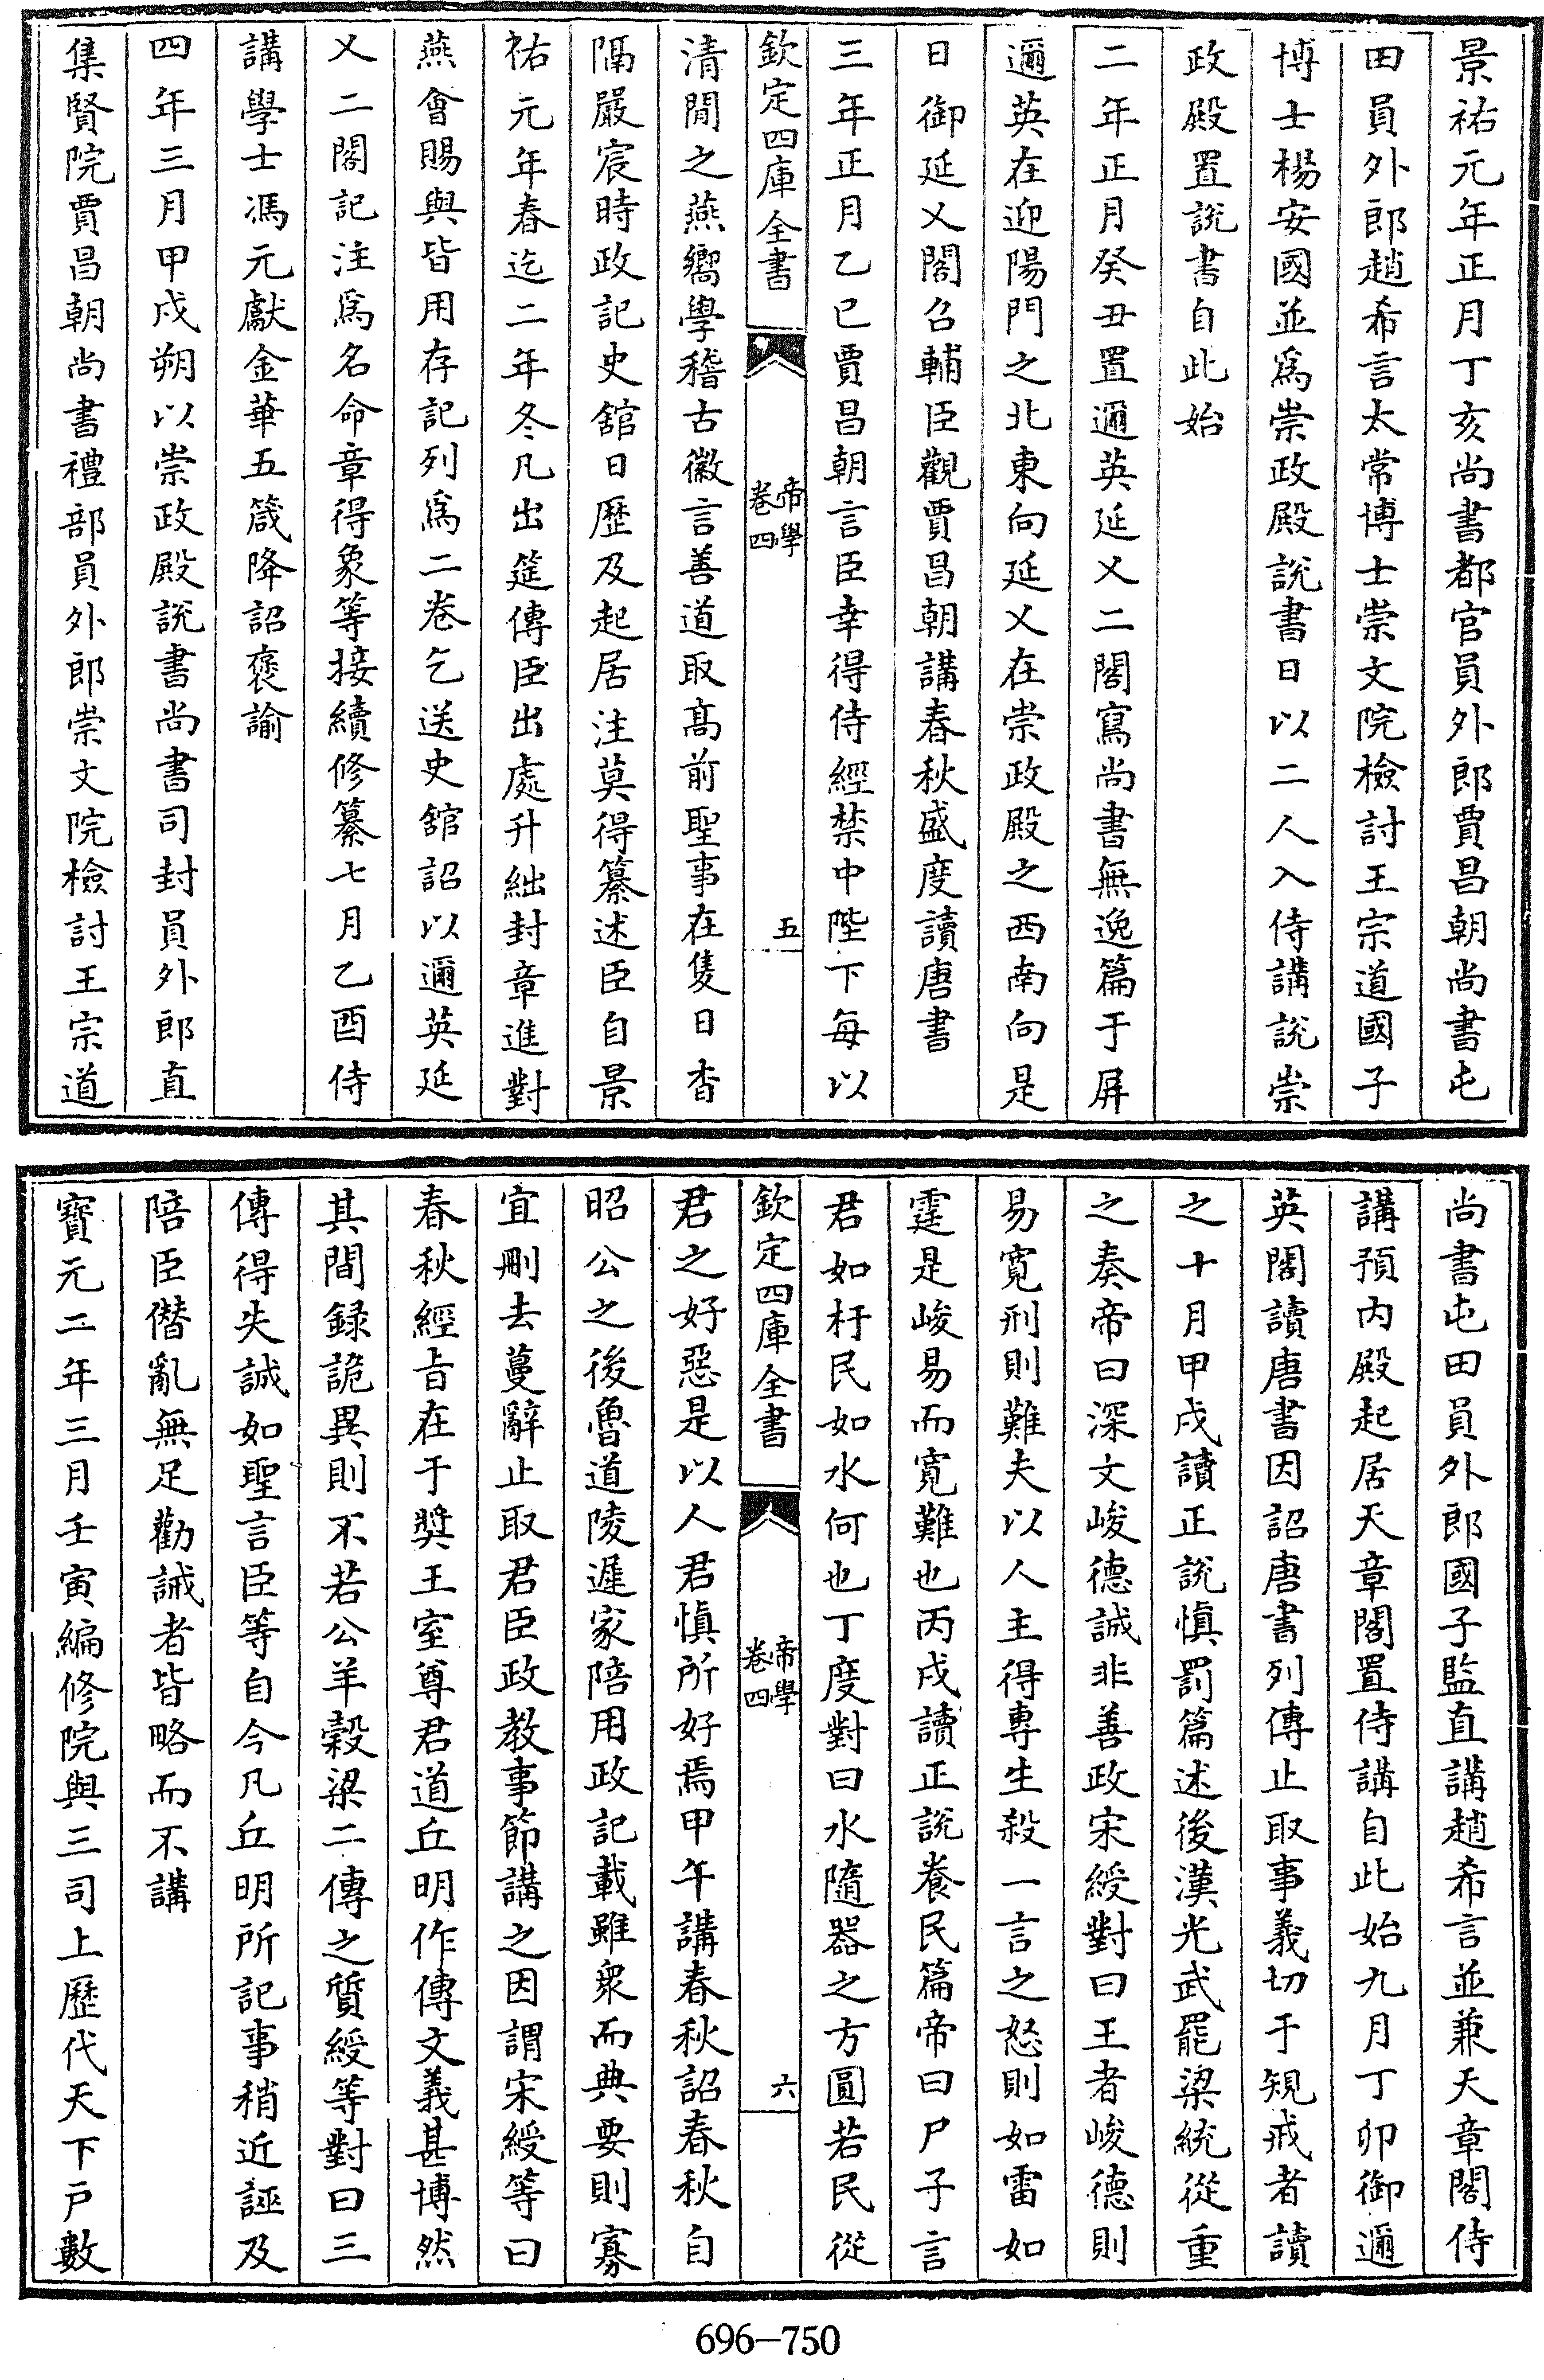 景祐元年正月丁亥尚書都官員外郎賈昌朝尚書屯
田員外郎趙希言太常博士崇文院檢討王宗道國子
博士楊安國並爲崇政殿說書日以二人入侍講說崇
政殿置說書自此始
二年正月癸丑置邇英延乂二閣寫尚書無逸篇于屏
邇英在迎陽門之北東向延乂在崇政殿之西南向是
日御延乂閣召輔臣觀賈昌朝講春秋盛度讀唐書
三年正月乙巳賈昌朝言臣幸得侍經禁中陛下每以
欽定四庫全書
帝學
卷四
五
清閒之燕嚮學稽古徽言善道取高前聖事在隻日杳
隔嚴宸時政記史舘日歷及起居注莫得纂述臣自景
祐元年春迄二年冬凡出筵傳臣出處升絀封章進對
燕會賜與皆用存記列爲二卷乞送史舘詔以邇英延
乂二閣記注爲名命章得象等接續修纂七月乙酉侍
講學士馮元獻金華五箴降詔褒諭
四年三月甲戌朔以崇政殿說書尚書司封員外郎直
集賢院賈昌朝尚書禮部員外郎崇文院檢討王宗道
尚書屯田員外郎國子監直講趙希言並兼天章閣侍
講預内殿起居天章閣置侍講自此始九月丁卯御邇
英閣讀唐書因詔唐書列傳止取事義切于規戒者讀
之十月甲戌讀正說慎罰篇述後漢光武罷梁統從重
之奏帝曰深文峻德誠非善政宋綬對曰王者峻德則
易寛刑則難夫以人主得專生殺一言之怒則如雷如
霆是峻易而寛難也丙戌讀正說養民篇帝曰尸子言
君如杅民如水何也丁度對曰水隨器之方圓若民從
欽定四庫全書
帝學
卷四
六
君之好惡是以人君慎所好焉甲午講春秋詔春秋自
昭公之後魯道陵遲家陪用政記載雖衆而典要則寡
宜刪去蔓辭止取君臣政教事節講之因謂宋綬等曰
春秋經旨在于奬王室尊君道丘明作傳文義甚博然
其間録詭異則不若公羊榖梁二傳之質綬等對曰三
傳得失誠如聖言臣等自今凡丘明所記事稍近誣及
陪臣僭亂無足勸誡者皆略而不講
寶元二年三月壬寅編修院與三司上歷代天下戸數
696-750